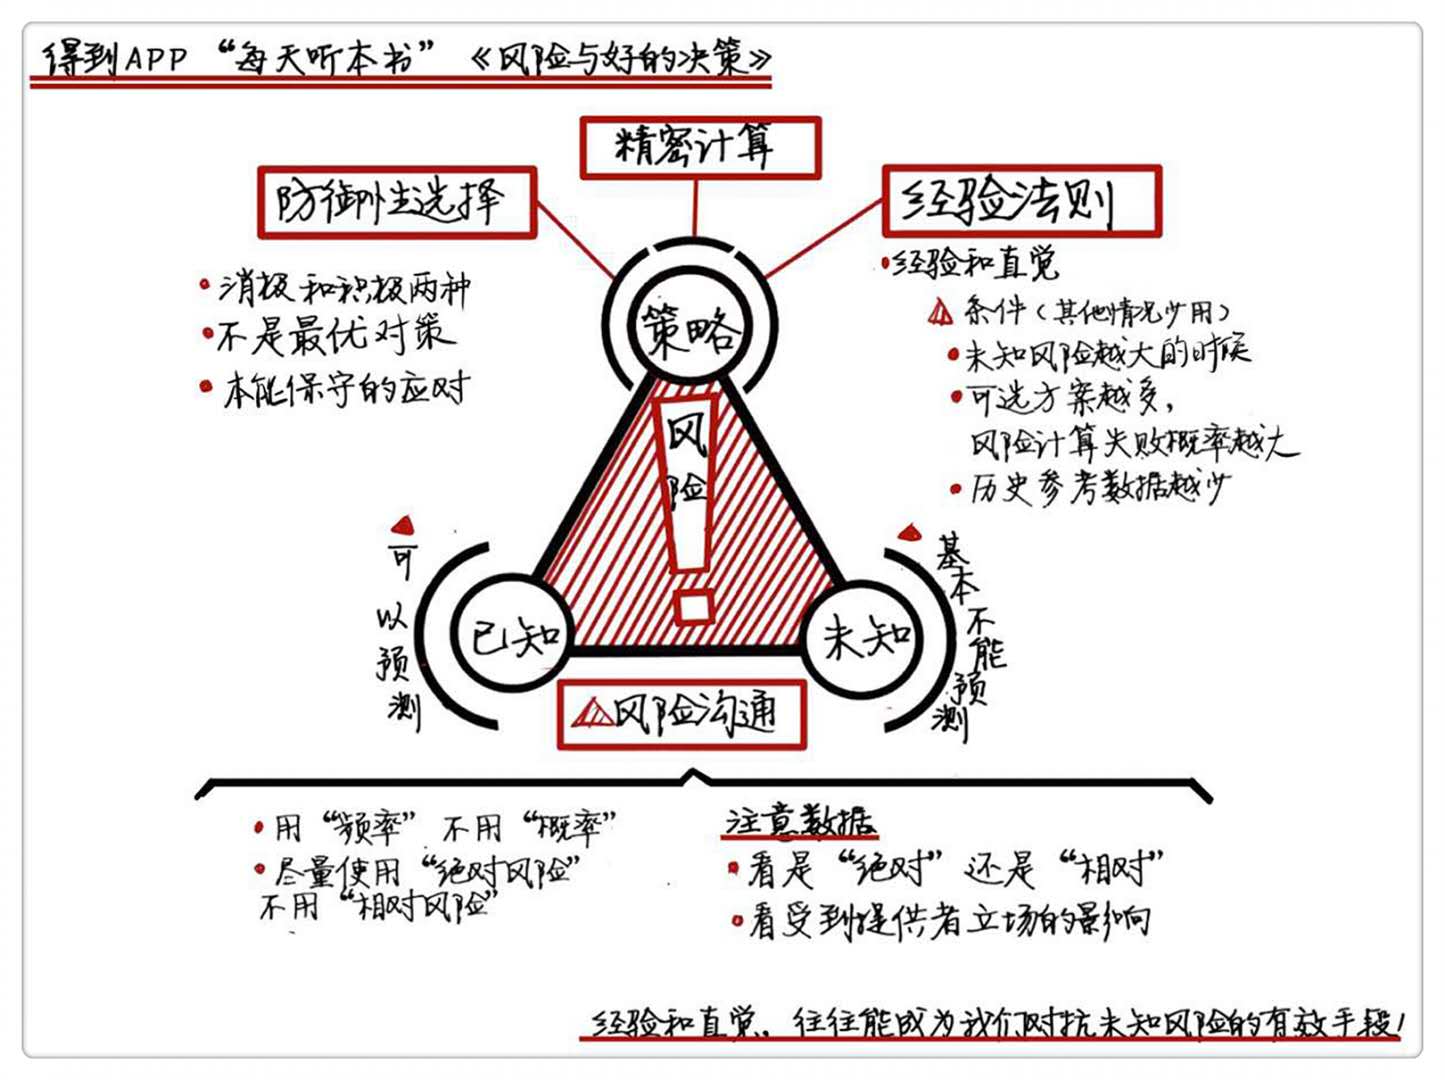 得到APP “每天听本书” 《风险与好的决策》
精密计算
防御性选择
经验法则
消极和积极两种
不是最优对策
本能保守的应对
经验和直觉
条件（其他情况少用）
未知风险越大的时候
可选方案越多，
风险计算失败概率越大
历史参考数据越少
策略
风险
已知
未知
可以预测
基本不能预测
风险沟通
用“频率” 不用“概率”
尽量使用“绝对风险”
不用“相对风险”
注意数据
看是“绝对” 还是“相对”
看受到提供者立场的影响
经验和直觉，往往能成为我们对抗未知风险的有效手段！